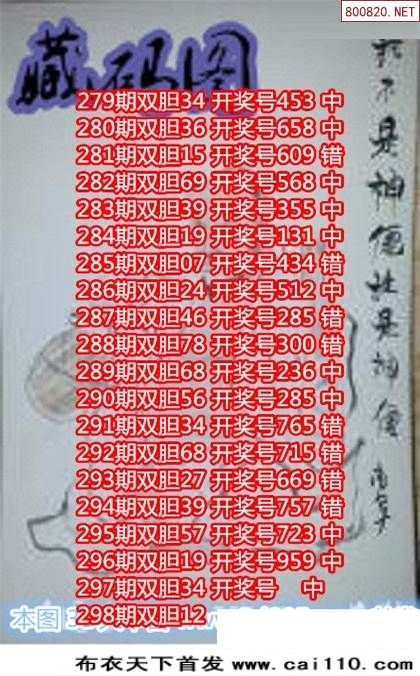 800820.NET
藏码图
279期双胆34 开奖号453 中
280期双胆36 开奖号658 中
281期双胆15 开奖号609 错
282期双胆69 开奖号568 中
283期双胆39 开奖号355 中
284期双胆19 开奖号131 中
285期双胆07 开奖号434 错
286期双胆24 开奖号512 中
287期双胆46 开奖号285 错
288期双胆78 开奖号300 错
289期双胆68 开奖号236 中
290期双胆56 开奖号285 中
291期双胆34 开奖号765 错
292期双胆68 开奖号715 错
293期双胆27 开奖号669 错
294期双胆39 开奖号757 错
295期双胆57 开奖号723 中
296期双胆19 开奖号959 中
297期双胆34 开奖号 中
298期双胆12
本图
布衣天下首发 www.cai110.com